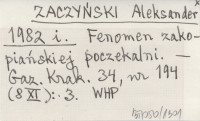 ZACZYŃSKI Aleksander
1982 i. Fenomen zako-
piańskiej poczekalni. —
Gaz. Krak. 34, nr 194
(8 XI): 3. WHP